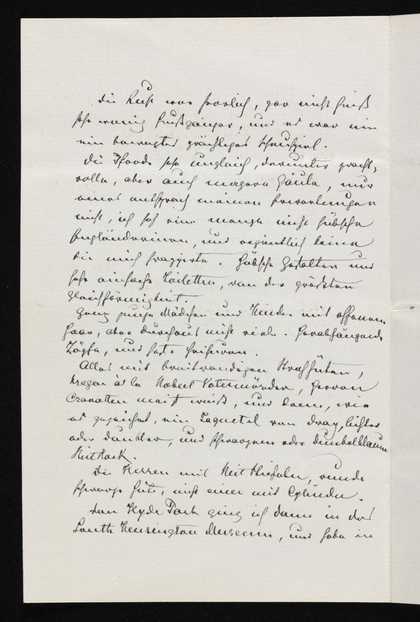 Die Luft war herrlich, gar nicht heiß
sehr wenig Fußgänger, und es war nur
ein bewegtes prächtiges Schauspiel.
Die Pferde sehr ungleich, darunter pracht,
volle, aber auch magere Gäule, nur
eines entsprach meinen Erwartungen
nicht, ich sah eine menge nicht hübsche
Engländerinnen, und eigentlich keine
die mich frappirte. Hübsche Gestalten und
sehr einfache Toiletten, von der größten
Gleichförmigkeit.
Ganz junge Mädchen und Kinder mit offenem
Haar, aber durchaus nicht viele. Herabhängende
Zöpfe, und hohe Frisuren.
Alles mit breitrandigen Strohhüten,
Kragen à la Vatermörder, Herren
Cravaten meist weiß, und dann, wie
es gezeichnet, ein Jaquetel von Drap, lichter
oder dunkler, und schwarzem oder dunkelblauem
Reitrock.
Die Herren mit Reitstiefeln, runde
schwarze Hüte, nicht einer mit Cylinder.
Von Hyde Park ging ich dann in das
South Kensington Museum, und habe in